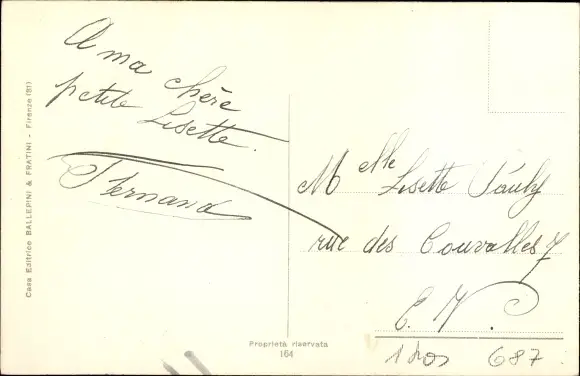 A ma chère
petite Lisette.
Fernand
Casa Editrice BALLERINI & FRATINI - Firenze (81)
Melle Lisette Pauly
rue des Couvalles 7
E. V.
Proprietà riservata
164
687